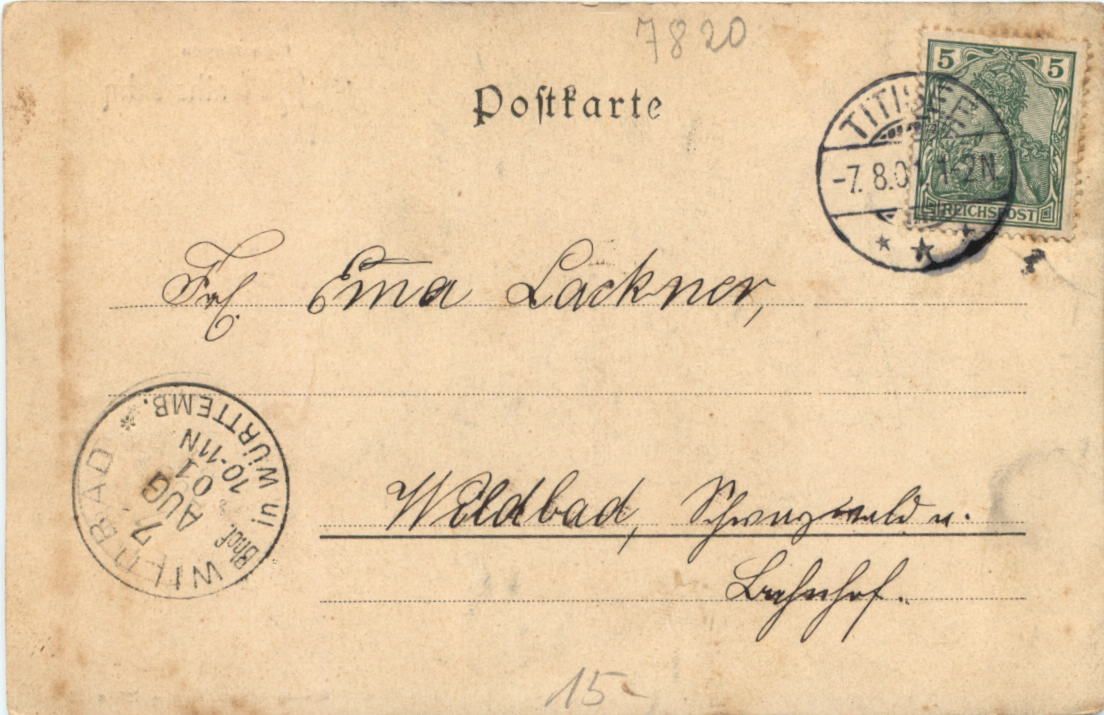 7820
Postkarte
5 5
REICHSPOST
TITISEE
-7.8.01 1-2N.
Frl. Ema Lackner,
WILDBAD Bhof. in WÜRTTEMB.
7 AUG 01
10-11N
Wildbad, Schwarzwald
Bahnhof.
15-